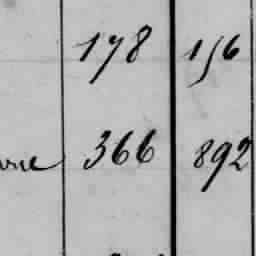 178 156
366 892